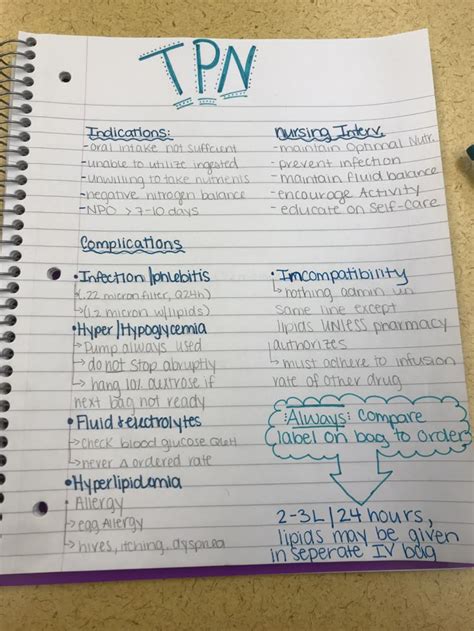 TPN
Indications:
-oral intake not sufficient
-unable to utilize ingested
-unwilling to take nutrients
-negative nitrogen balance
-NPO >7-10 days
nursing Interv.
-maintain Optimal Nutr.
-prevent infection
-maintain fluid balance
-encourage Activity
-educate on Self-care
Complications
•Infection/phlebitis
↳(.22 micron filter, Q24h)
↳(1.2 micron w/lipids)
•Hyper/Hypoglycemia
↳Pump always used
↳do not stop abruptly
↳hang 10% dextrose if
next bag not ready
•Fluid & electrolytes
↳check blood glucose Q6H
↳never Δ ordered rate
•Hyperlipidemia
•Allergy
↳egg Allergy
↳hives, itching, dyspnea
•Imcompatibility
↳nothing admin un
same line except
lipids UNLESS pharmacy
authorizes
↳must adhere to infusion
rate of other drug
Always: Compare
label on bag to Order
2-3L/24 hours,
lipids may be given
in seperate IV bag